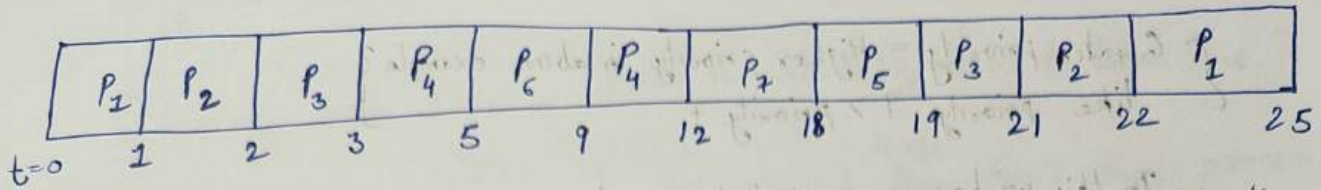 P₁ P₂ P₃ P₄ P₆ P₄ P₇ P₅ P₃ P₂ P₁
t=0 1 2 3 5 9 12 18 19 21 22 25